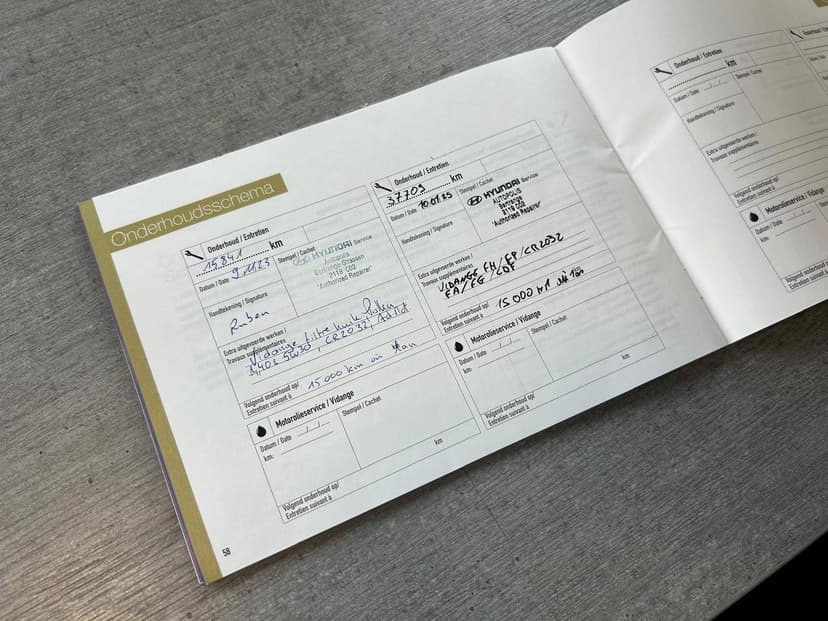 Onderhoudsschema
Onderhoud / Entretien
15841 km
Datum / Date 9.11.23
Stempel / Cachet
HYUNDAI Service
Autopolis
2119 C02
"Authorized Repairer"
Handtekening / Signature
Ruben
Extra uitgevoerde werken /
Travaux supplémentaires
Vidange filtre huile
5W30, CR2032,
Volgend onderhoud op/
Entretien suivant à
15000 km ou 1an
Motorolieservice / Vidange
Datum / Date
Stempel / Cachet
km:
km
Volgend onderhoud op/
Entretien suivant à
Onderhoud / Entretien
37709 km
Datum / Date 10.01.25
Stempel / Cachet
HYUNDAI Service
AUTOPOLIS
Bertrange
2119 C02
"Authorized Repairer"
Handtekening / Signature
Extra uitgevoerde werken /
Travaux supplémentaires
VIDANGE FH/FP/CR2032
FA/FG/LDF
Volgend onderhoud op/
Entretien suivant à
15 000
Motorolieservice / Vidange
Datum / Date
Stempel / Cachet
km:
km
Volgend onderhoud op/
Entretien suivant à
58
Onderhoud / Entretien
km
Datum / Date
Stempel / Cachet
Handtekening / Signature
Extra uitgevoerde werken /
Travaux supplémentaires
Volgend onderhoud op/
Entretien suivant à
Motorolieservice / Vidange
Datum / Date
km: